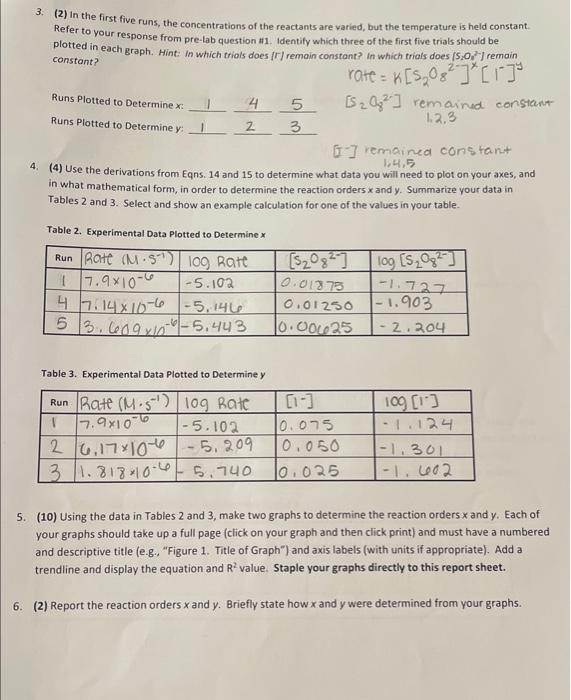 3. (2) In the first five runs, the concentrations of the reactants are varied, but the temperature is held constant.
Refer to your response from pre-lab question #1. Identify which three of the first five trials should be
plotted in each graph. Hint: In which trials does [I⁻] remain constant? In which trials does [S₂O₈²⁻] remain
constant?
rate = K[S₂O₈²⁻]ˣ[I⁻]ʸ
Runs Plotted to Determine x: 1 4 5
[S₂O₈²⁻] remained constant
1,2,3
Runs Plotted to Determine y: 1 2 3
[I⁻] remained constant
1,4,5
4. (4) Use the derivations from Eqns. 14 and 15 to determine what data you will need to plot on your axes, and
in what mathematical form, in order to determine the reaction orders x and y. Summarize your data in
Tables 2 and 3. Select and show an example calculation for one of the values in your table.
Table 2. Experimental Data Plotted to Determine x
Run Rate (M·s⁻¹) log Rate [S₂O₈²⁻] log [S₂O₈²⁻]
1 7.9×10⁻⁶ -5.102 0.01875 -1.727
4 7.14×10⁻⁶ -5.146 0.01250 -1.903
5 3.609×10⁻⁶ -5.443 0.00625 -2.204
Table 3. Experimental Data Plotted to Determine y
Run Rate (M·s⁻¹) log Rate [I⁻] log [I⁻]
1 7.9×10⁻⁶ -5.102 0.075 -1.124
2 6.17×10⁻⁶ -5.209 0.050 -1.301
3 1.818×10⁻⁶ -5.740 0.025 -1.602
5. (10) Using the data in Tables 2 and 3, make two graphs to determine the reaction orders x and y. Each of
your graphs should take up a full page (click on your graph and then click print) and must have a numbered
and descriptive title (e.g., "Figure 1. Title of Graph") and axis labels (with units if appropriate). Add a
trendline and display the equation and R² value. Staple your graphs directly to this report sheet.
6. (2) Report the reaction orders x and y. Briefly state how x and y were determined from your graphs.